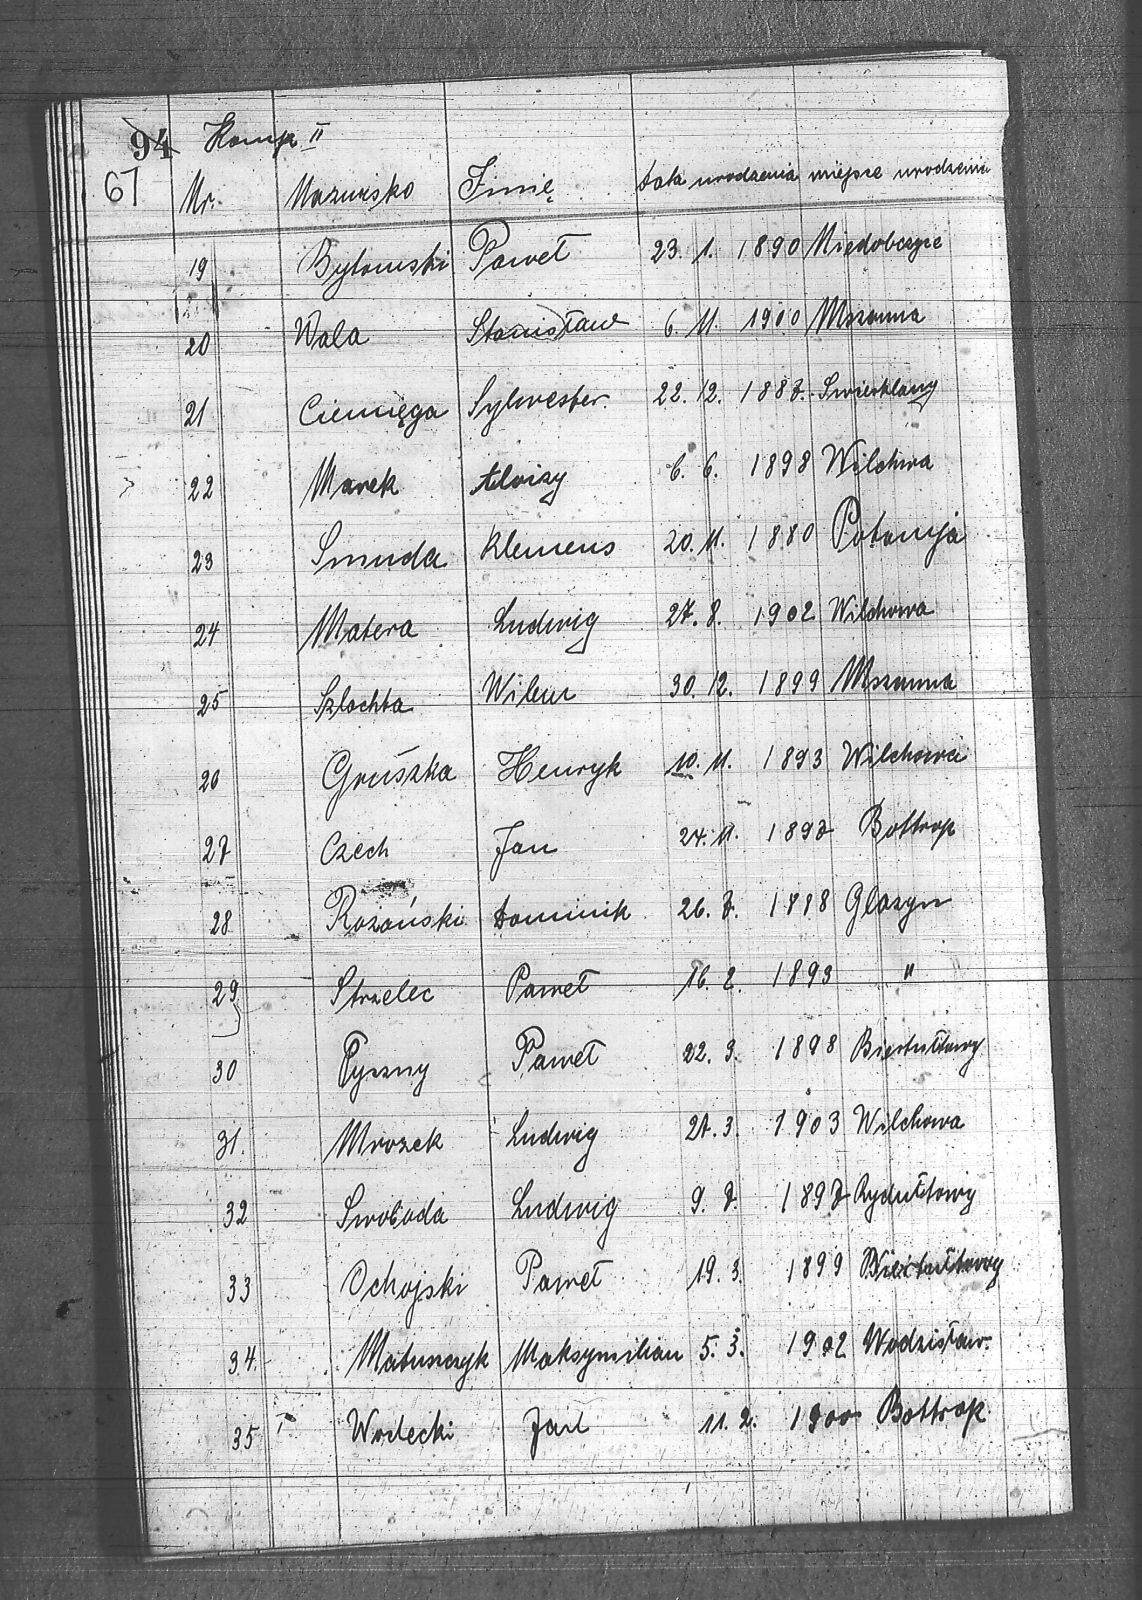 94 Komp II
67
Nr. Nazwisko Imię data urodzenia miejsce urodzenia
19 Bytomski Paweł 23. 1. 1890 Niedobczyce
20 Wala Stanisław 6. 11. 1900 Mszanna
21 Ciemięga Sylwester. 22. 12. 1887. Swierklany
22 Marek Alojzy 6. 6. 1898 Wilchwa
23 Smuda Klemens 20. 11. 1880 Połomja
24 Matera Ludwig 27. 8. 1902 Wilchowa
25 Szlachta 30. 12. 1899 Mszanna
20 Gruszka Henryk 10. 11. 1893 Wilchowa
27 Czech Jan 24. 11. 1897 Bottrop
28 Rozański Dominik 26. 7. 1888 Glozyn
29 Strzelec Paweł 16. 2. 1893 "
30 Pyszny Paweł 22. 3. 1898 Biertułtowy
31. Mrozek Ludwig 27. 3. 1903 Wilchowa
32 Swoboda Ludwig 9. 7. 1897 Rydułtowy
33 Ochojski Paweł 19. 3. 1899 Biertułtowy
34. Matuszczyk Maksymilian 5. 3. 1902 Wodzisław.
35 Wodecki Jan 11. 2. 1900 Bottrop